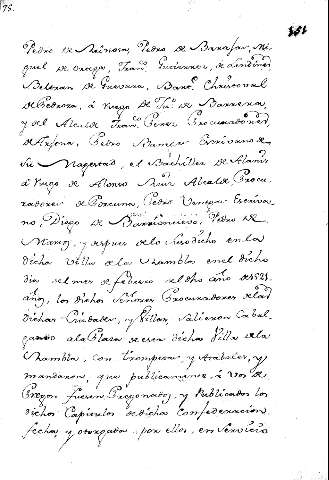 75.
351
Pedro de Reinosa, Pedro de Barajas, Mi
guel de Ortega, Fran.co Gutierrez, de
Beltran de Guevara, Bar.e Christoval
de Pedroza, à ruego de Ju.o de Barrera
y del Alcalde Fran.co Perez Procurador
de Arjona, Pedro Ramir Escrivano de
Su Magestad, el Bachiller de Alanis
à ruego de Alonso Ruiz Alcalde, Procu
radores de Porcuna, Pedro Vanegas Escriva
no, Diego de Barrionuevo, Pedro de
Marcos, y despues de lo suso dicho en la
dicha Villa de la Rambla en el dicho
dia del mes de febrero del dho año de 1521
años, los dichos Señores Procuradores de las
dichas Ciudades, y Villas salieron Caval
gando a la Plaza de esta dicha Villa de la
Rambla, con Trompetas, y Atabales, y
mandaron, que publicamente, à voz de
Pregon fuesen Pregonados, y Publicados los
dichos Capitulos de dicha Confederacion
fecha, y otorgada por ellos, en Servicio